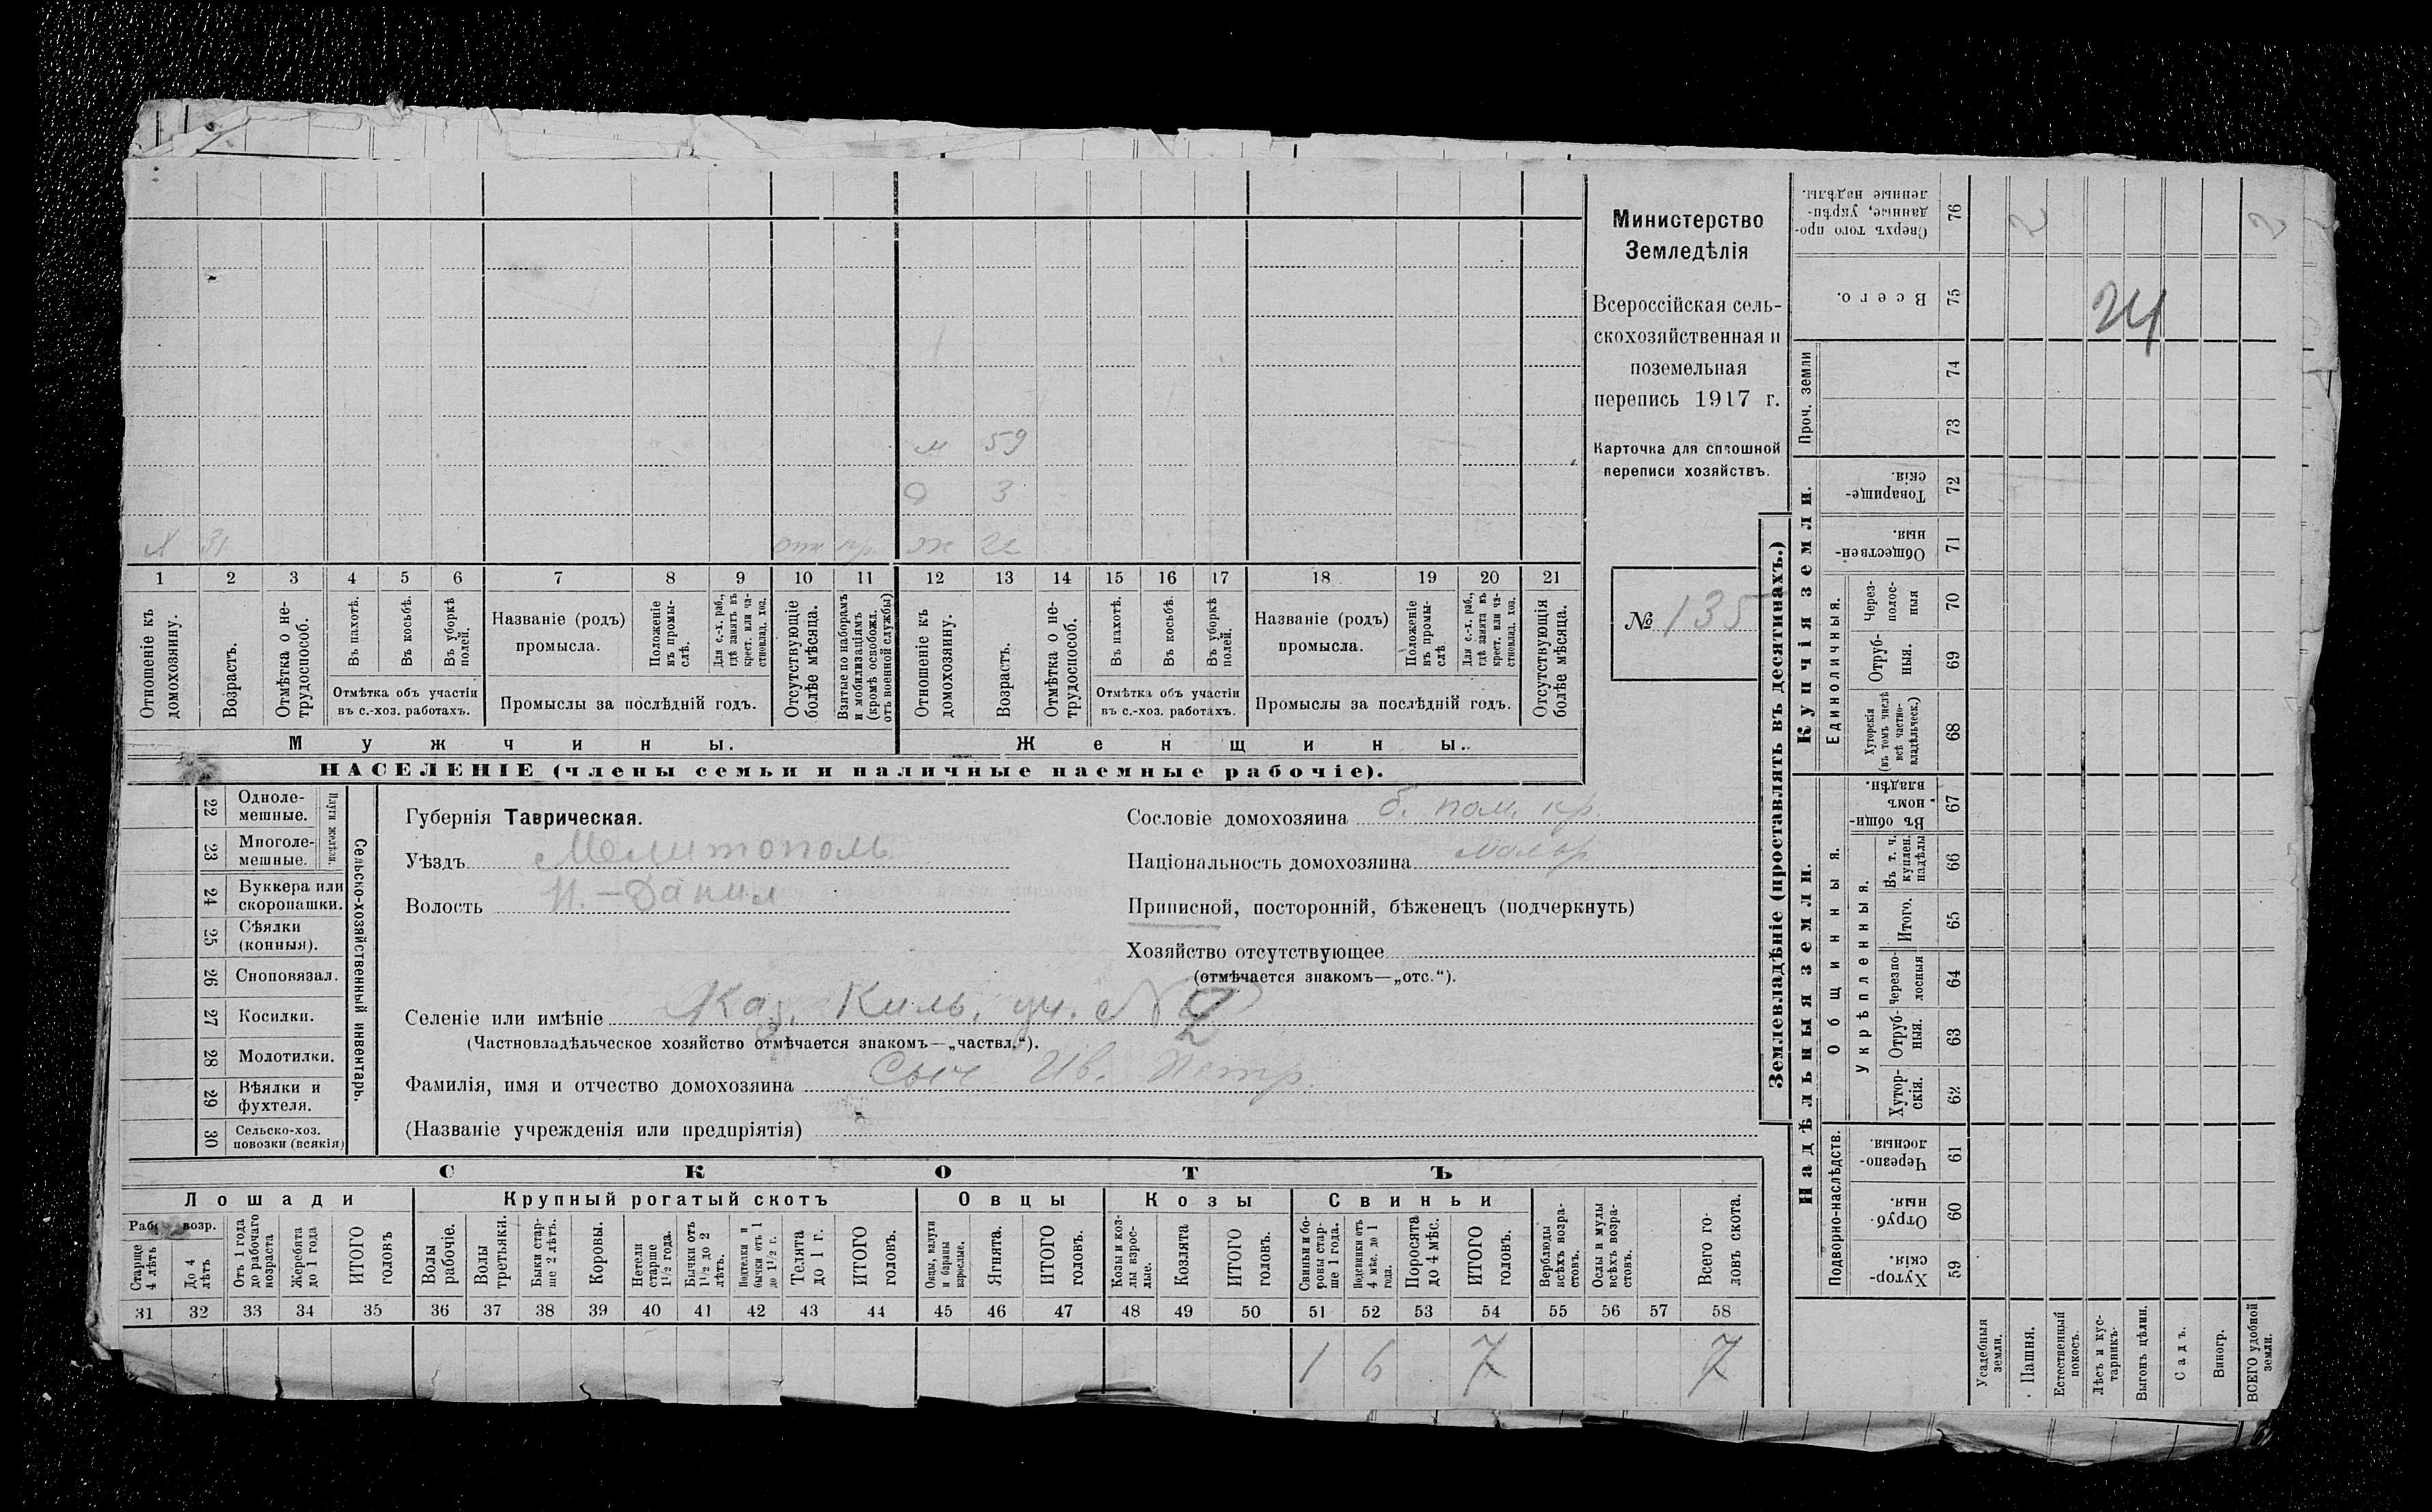 Министерство
Земледѣлія
Всероссійская сель-
скохозяйственная и
поземельная
перепись 1917 г.
Карточка для сплошной
переписи хозяйствъ.
№ 135
м 59
д 3
х 31 ж 22
1 2 3 4 5 6 7 8 9 10 11 12 13 14 15 16 17 18 19 20 21
Отношеніе къ домохозяину.
Возрастъ.
Отмѣтка о не-трудоспособ.
Въ пахотѣ.
Въ косьбѣ.
Въ уборкѣ полей.
Отмѣтка объ участіи
въ с.-хоз. работахъ.
Названіе (родъ)
промысла.
Положеніе въ промы-слѣ.
Для с.-х. раб., гдѣ занятъ въ крест. или ча-стновлад. хоз.
Промыслы за послѣдній годъ.
Отсутствующіе болѣе мѣсяца.
Взятые по наборамъ и мобилизаціямъ (кромѣ освобожд. отъ военной службы)
Отношеніе къ домохозяину.
Возрастъ.
Отмѣтка о не-трудоспособ.
Въ пахотѣ.
Въ косьбѣ.
Въ уборкѣ полей.
Отмѣтка объ участіи
въ с.-хоз. работахъ.
Названіе (родъ)
промысла.
Положеніе въ промы-слѣ.
Для с.-х. раб., гдѣ занята въ крест. или ча-стновлад. хоз.
Промыслы за послѣдній годъ.
Отсутствующія болѣе мѣсяца.
Мужчины. Женщины.
НАСЕЛЕНІЕ (члены семьи и наличные наемные рабочіе).
22 Одноле-мешные.
23 Многоле-мешные.
Плуги желѣзн.
24 Буккера или скоропашки.
25 Сѣялки (конныя).
26 Сноповязал.
27 Косилки.
28 Молотилки.
29 Вѣялки и фухтеля.
30 Сельско-хоз. повозки (всякія)
Сельско-хозяйственный инвентарь.
Губернія Таврическая.
Уѣздъ Мелитополь
Волость Н.-Данил
Сословіе домохозяина б. пом. кр.
Національность домохозяина малор
Приписной, посторонній, бѣженецъ (подчеркнуть)
Хозяйство отсутствующее
(отмѣчается знакомъ—„отс.“).
Селеніе или имѣніе Каз. Киль. уч. № 2
(Частновладѣльческое хозяйство отмѣчается знакомъ—„частвл.“).
Фамилія, имя и отчество домохозяина Сыч Ив. Петр.
(Названіе учрежденія или предпріятія)
СКОТЪ
Лошади Крупный рогатый скотъ Овцы Козы Свиньи
Раб. возр.
Старше 4 лѣтъ
До 4 лѣтъ
Отъ 1 года до рабочаго возраста
Жеребята до 1 года
ИТОГО головъ
Волы рабочіе.
Волы третьяки.
Быки стар-ше 2 лѣтъ.
Коровы.
Нетели старше 1 1/2 года.
Бычки отъ 1 1/2 до 2 лѣтъ.
Подтелки и бычки отъ 1 до 1 1/2 г.
Телята до 1 г.
ИТОГО головъ.
Овцы, валухи и бараны взрослые.
Ягнята.
ИТОГО головъ.
Козы и коз-лы взрос-лые.
Козлята
ИТОГО головъ.
Свиньи и бо-ровы стар-ше 1 года.
Подсвинки отъ 4 мѣс. до 1 года.
Поросята до 4 мѣс.
ИТОГО головъ.
Верблюды всѣхъ возра-стовъ.
Ослы и мулы всѣхъ возра-стовъ.
Всего го-ловъ скота.
31 32 33 34 35 36 37 38 39 40 41 42 43 44 45 46 47 48 49 50 51 52 53 54 55 56 57 58
1 6 7 7
Землевладѣніе (проставлять въ десятинахъ.)
Купчія земли.
Надѣльныя земли.
Сверхъ того про-данные, укрѣп-ленные надѣлы. 76
Всего. 75
Проч. земли 74 73
Товарище-скія. 72
Обществен-ныя. 71
Единоличныя.
Через-полос-ныя 70
Отруб-ныя. 69
Хуторскія (въ томъ числѣ всѣ частно-владѣльческ.) 68
Общинныя.
Въ общин-номъ владѣн. 67
Укрѣпленныя.
Въ т. ч. куплен. надѣлы 66
Итого. 65
Черезпо-лосныя 64
Отруб-ныя. 63
Хутор-скія. 62
Подворно-наслѣдств.
Черезпо-лосныя. 61
Отруб-ныя. 60
Хутор-скія. 59
Усадебныя земли.
Пашня.
Естественный покосъ.
Лѣсъ и кус-тарникъ.
Выгонъ цѣлин.
Садъ.
Виногр.
ВСЕГО удобной земли.
2 2
24